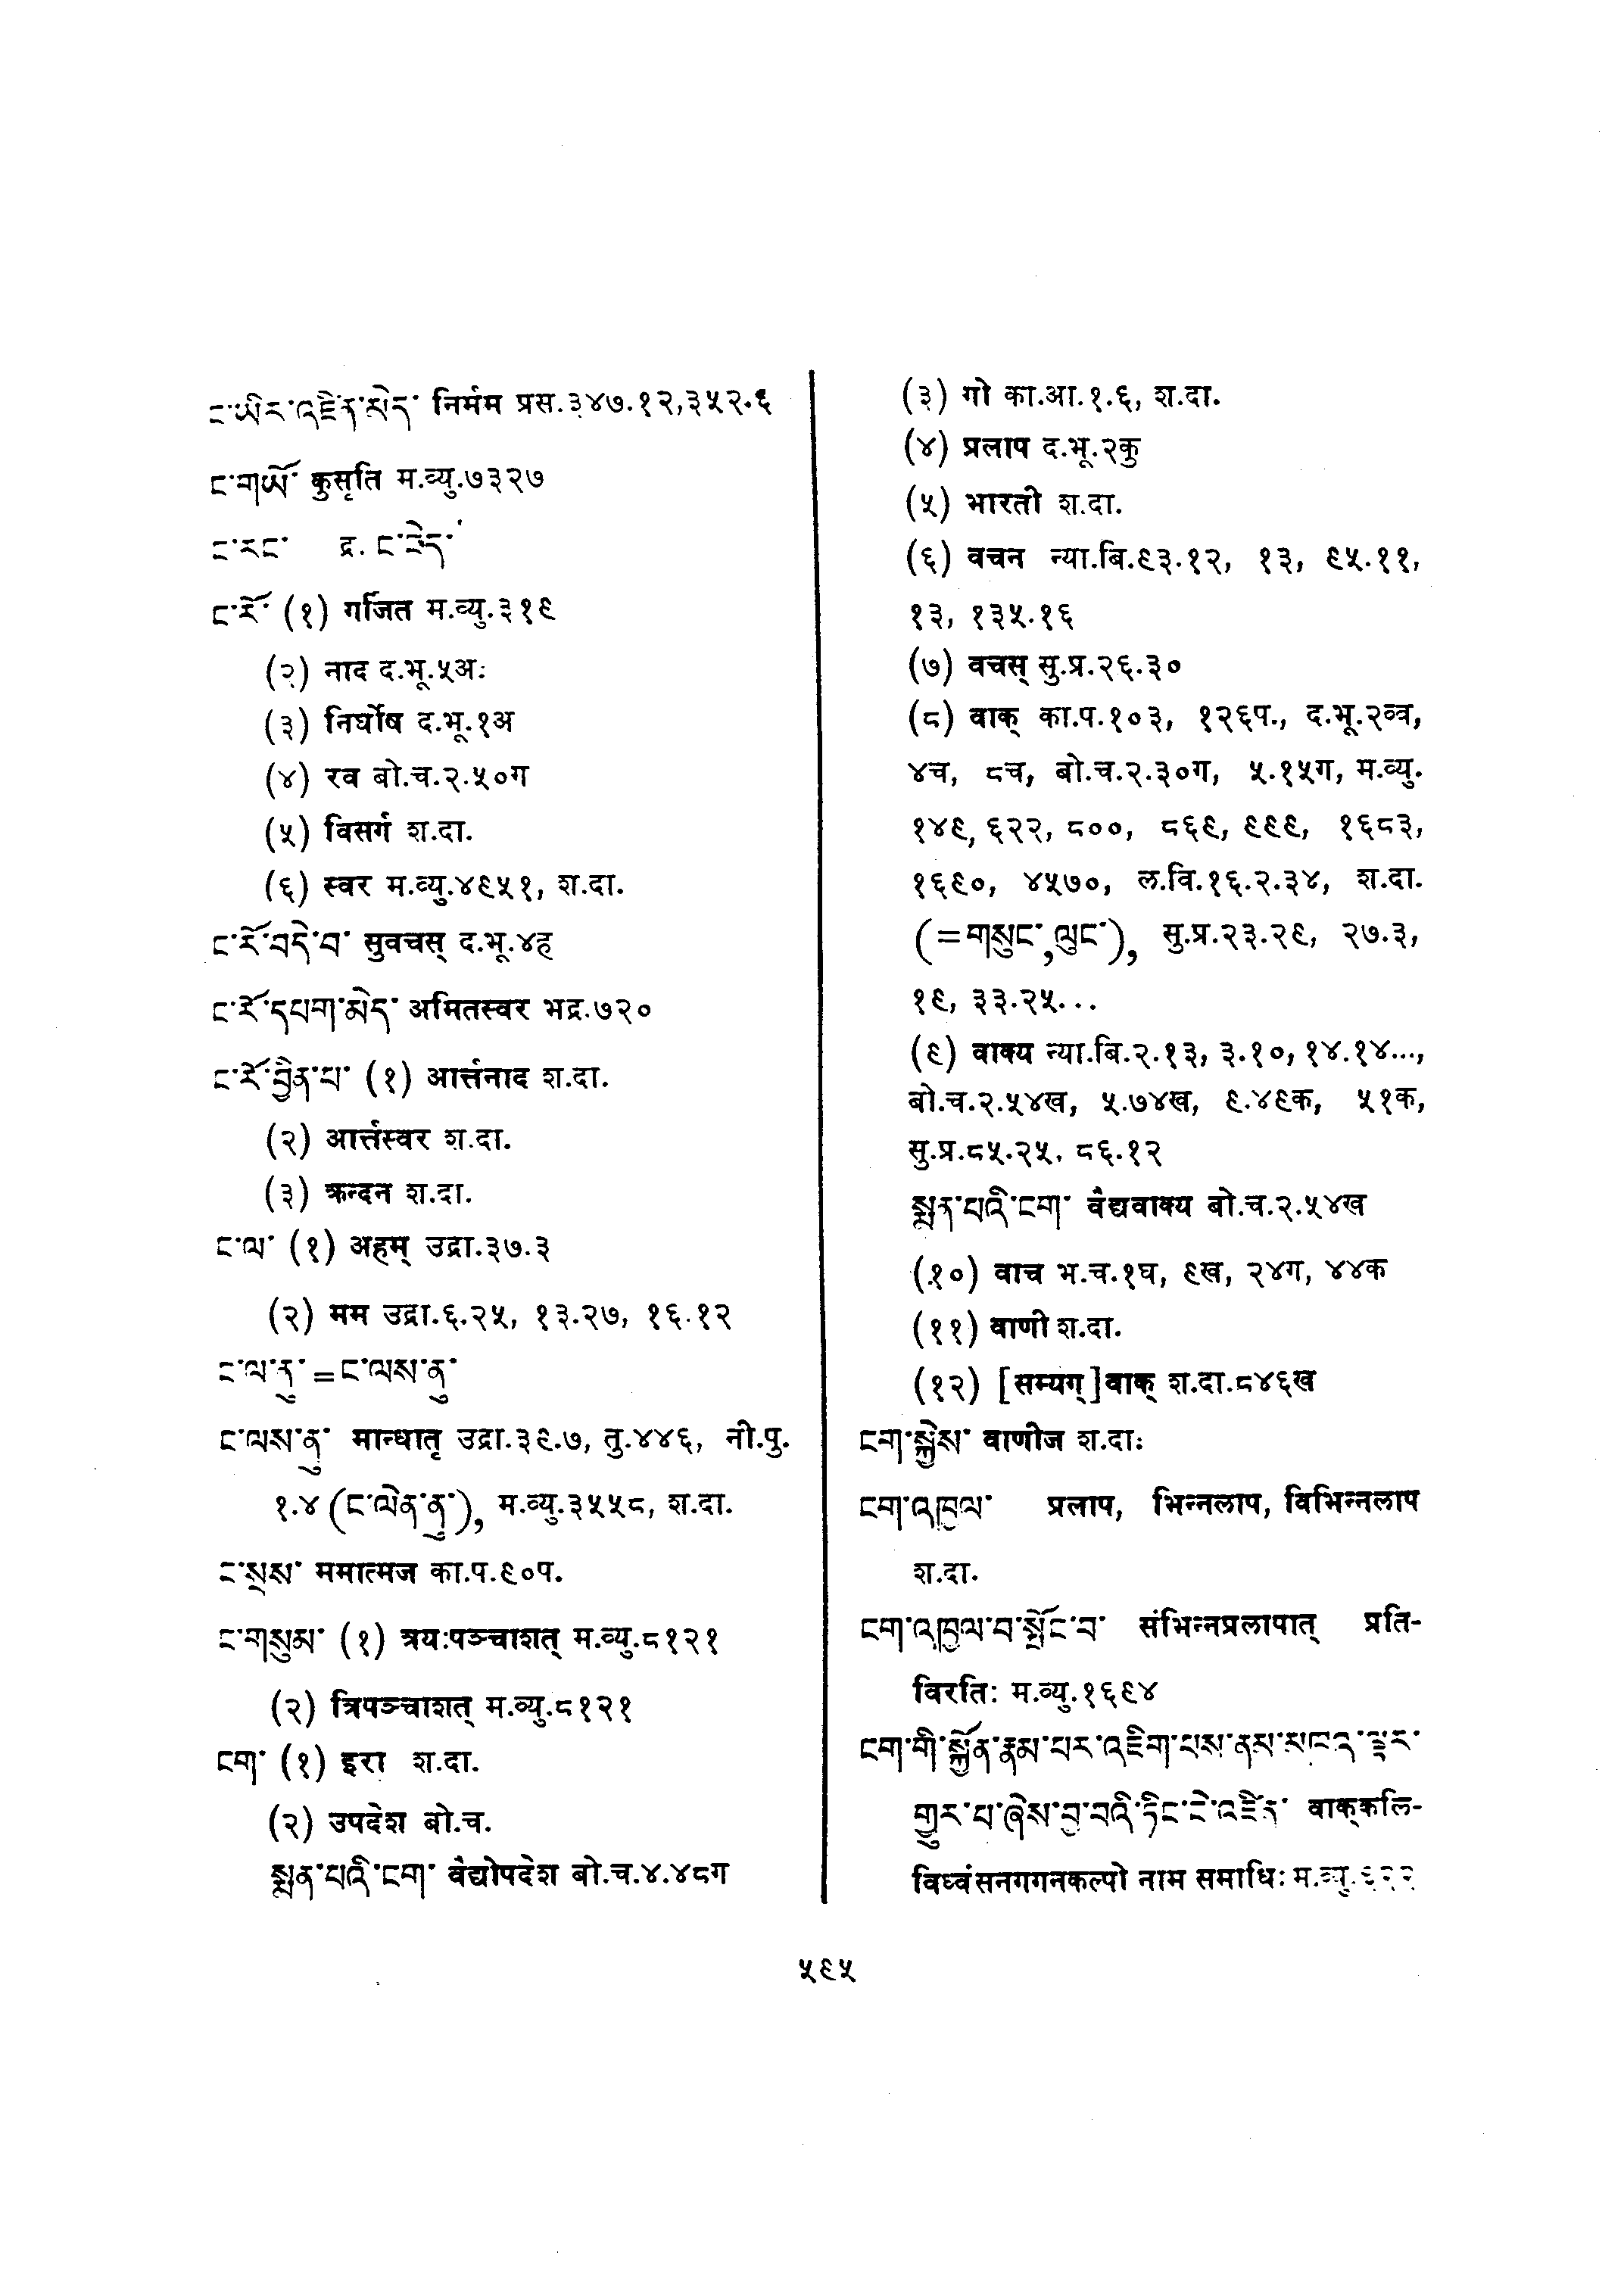 ང་ཡིར་འཛིན་མེད་ निर्मम प्रस.३४७.१२,३५२.६
ང་གཡོ་ कुसृति म.व्यु.७३२७
ང་རང་ द्र. ང་ཉིད་
ང་རོ་ (१) गर्जित म.व्यु.३१९
(२) नाद द.भू.५अ:
(३) निर्घोष द.भू.१अ
(४) रव बो.च.२.५०ग
(५) विसर्ग श.दा.
(६) स्वर म.व्यु.४९५१, श.दा.
ང་རོ་བདེ་བ་ सुवचस् द.भू.४ह
ང་རོ་དཔག་མེད་ अमितस्वर भद्र.७२०
ང་རོ་བྱིན་པ་ (१) आर्त्तनाद श.दा.
(२) आर्त्तस्वर श.दा.
(३) क्रन्दन श.दा.
ང་ལ་ (१) अहम् उद्रा.३७.३
(२) मम उद्रा.६.२५, १३.२७, १६.१२
ང་ལ་ནུ་ = ང་ལས་ནུ་
ང་ལས་ནུ་ मान्धातृ उद्रा.३९.७, तु.४४६, नी.पु.
१.४ (ང་ལེན་ནུ་), म.व्यु.३५५८, श.दा.
ང་སྲས་ ममात्मज का.प.९०प.
ང་གསུམ་ (१) त्रय:पञ्चाशत् म.व्यु.८१२१
(२) त्रिपञ्चाशत् म.व्यु.८१२१
ངག་ (१) इरा श.दा.
(२) उपदेश बो.च.
སྨན་པའི་ངག་ वैद्योपदेश बो.च.४.४८ग
(३) गो का.आ.१.६, श.दा.
(४) प्रलाप द.भू.२कु
(५) भारती श.दा.
(६) वचन न्या.बि.९३.१२, १३, ९५.११,
१३, १३५.१६
(७) वचस् सु.प्र.२६.३०
(८) वाक् का.प.१०३, १२६प., द.भू.२व्व,
४च, ८च, बो.च.२.३०ग, ५.१५ग, म.व्यु.
१४९, ६२२, ८००, ८६९, ९९९, १६८३,
१६९०, ४५७०, ल.वि.१६.२.३४, श.दा.
(=གསུང་, ལུང་), सु.प्र.२३.२९, २७.३,
१९, ३३.२५...
(९) वाक्य न्या.बि.२.१३, ३.१०, १४.१४...,
बो.च.२.५४ख, ५.७४ख, ९.४९क, ५१क,
सु.प्र.८५.२५, ८६.१२
སྨན་པའི་ངག་ वैद्यवाक्य बो.च.२.५४ख
(१०) वाच भ.च.१घ, ९ख, २४ग, ४४क
(११) वाणी श.दा.
(१२) [सम्यग्]वाक् श.दा.८४६ख
ངག་སྐྱེས་ वाणीज श.दा:
ངག་འཁྱལ་ प्रलाप, भिन्नलाप, विभिन्नलाप
श.दा.
ངག་འཁྱལ་བ་སྤོང་བ་ संभिन्नप्रलापात् प्रति-
विरति: म.व्यु.१६९४
ངག་གི་སྐྱོན་རྣམ་པར་འཇིག་པས་ནས་མཁའ་ལྟར་
གྱུར་པ་ཞེས་བྱ་བའི་ཏིང་ངེ་འཛིན་ वाक्कलि-
विध्वंसनगगनकल्पो नाम समाधि: म.व्यु.६२२
५९५